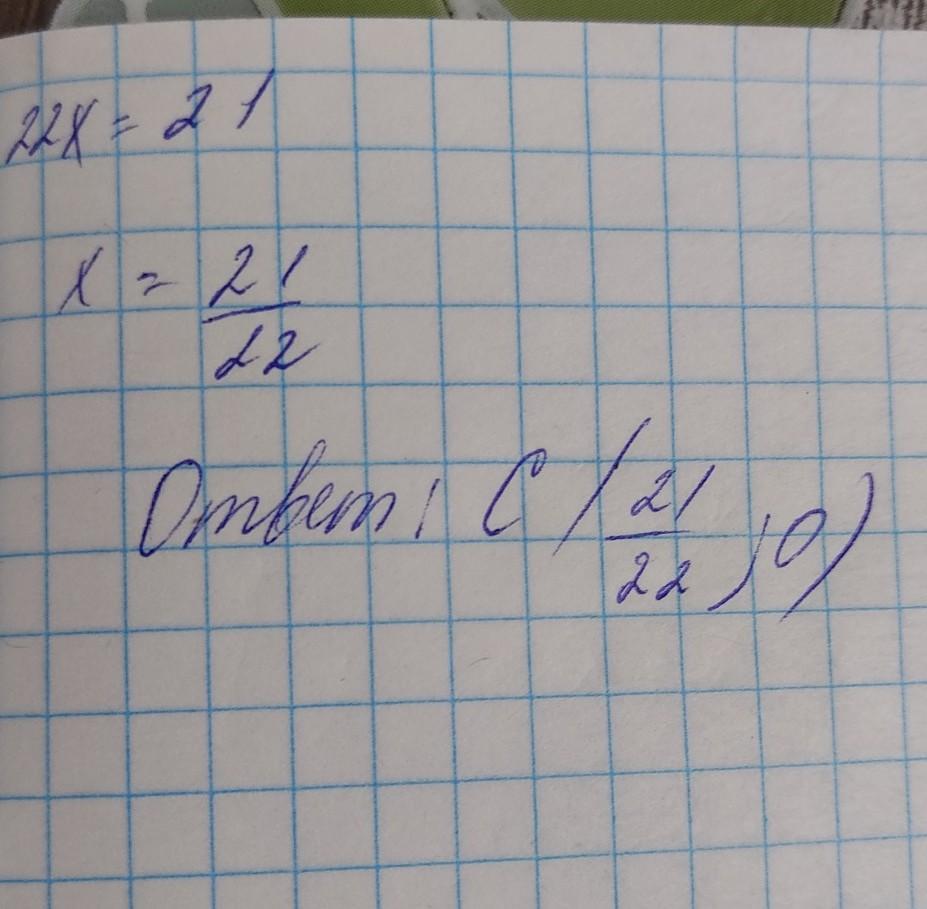 22x = 21
x = 21/22
Ответ: C (21/22; 0)